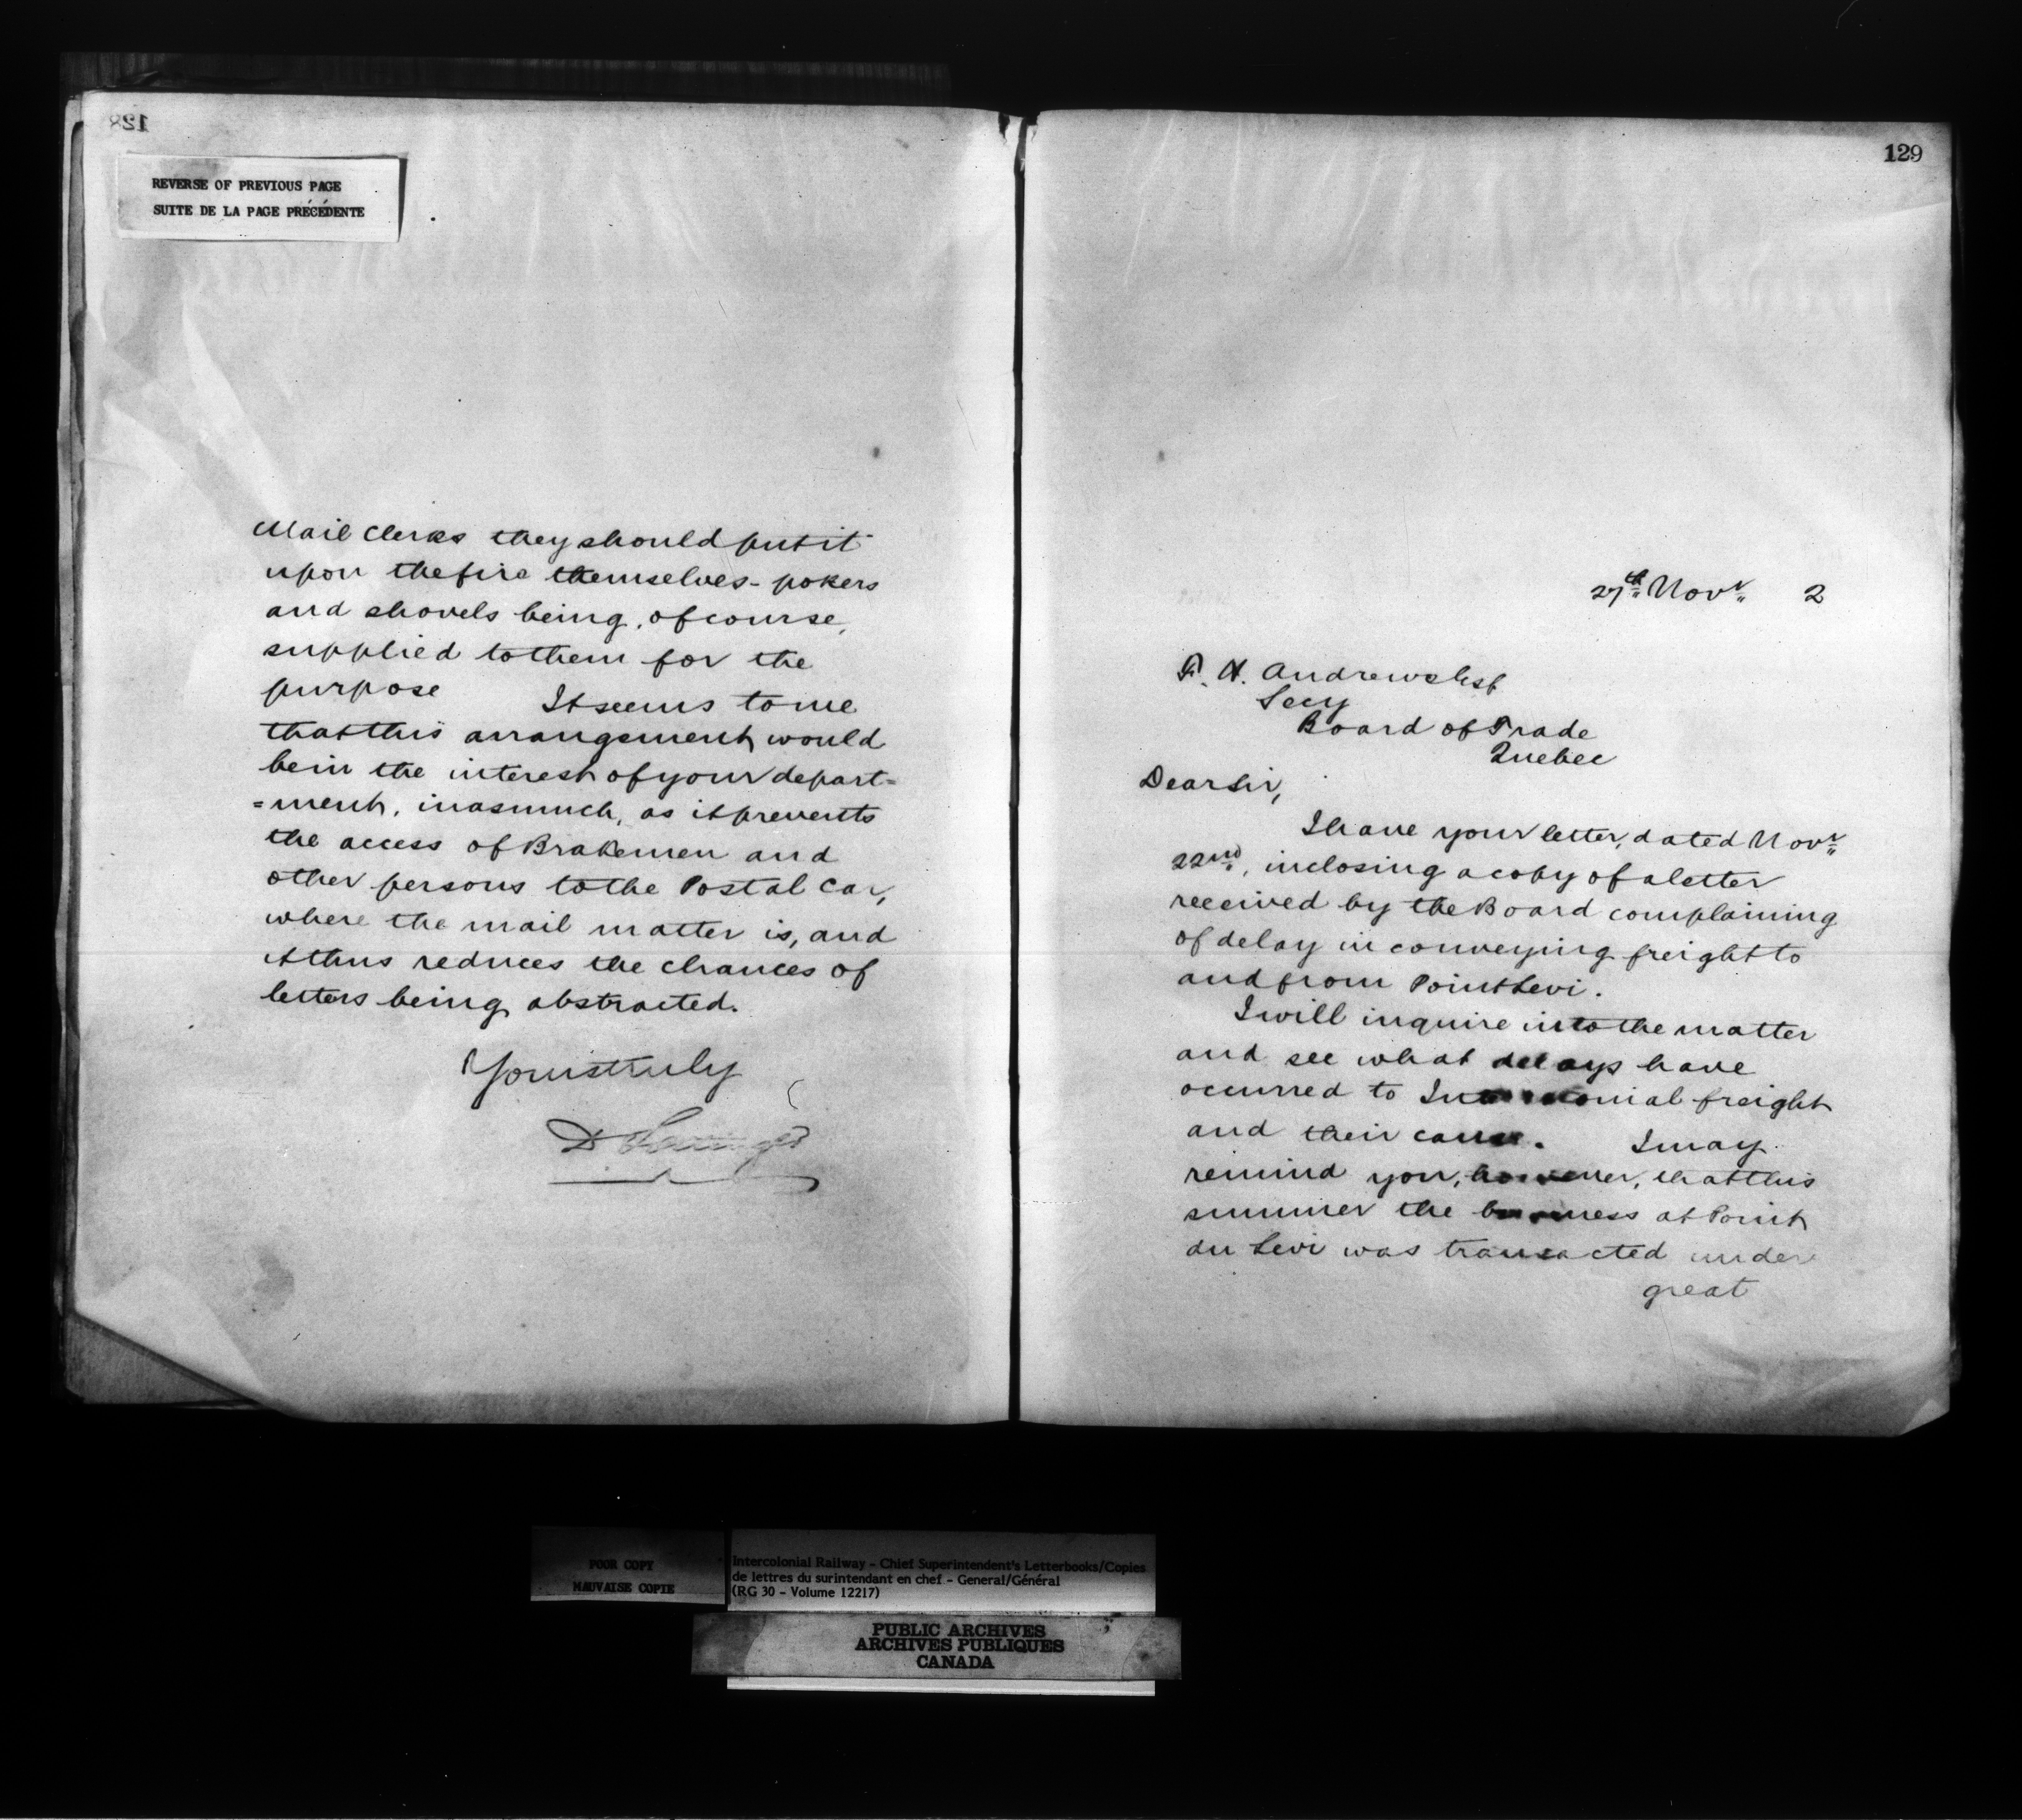 128
REVERSE OF PREVIOUS PAGE
SUITE DE LA PAGE PRÉCÉDENTE
Mail Clerks they should put it
upon the fire themselves - pokers
and shovels being, of course,
supplied to them for the
purpose It seems to me
that this arrangement would
be in the interest of your depart=
=ment, inasmuch, as it prevents
the access of Brakemen and
other persons to the Postal Car,
where the mail matter is, and
it thus reduces the chances of
letters being abstracted.
Yours truly
D
129
27th Novr 2
F. H. Andrews Esq
Secy
Board of Trade
Quebec
Dear Sir,
I have your letter, dated Novr
22nd, inclosing a copy of a letter
received by the Board complaining
of delay in conveying freight to
and from Point Levi.
I will inquire into the matter
and see what delays have
occurred to Intercolonial freight
and their cause. I may
remind you, however, that this
summer the business at Point
du Levi was transacted under
great
POOR COPY
MAUVAISE COPIE
Intercolonial Railway - Chief Superintendent's Letterbooks/Copies
de lettres du surintendant en chef - General/Général
(RG 30 - Volume 12217)
PUBLIC ARCHIVES
ARCHIVES PUBLIQUES
CANADA